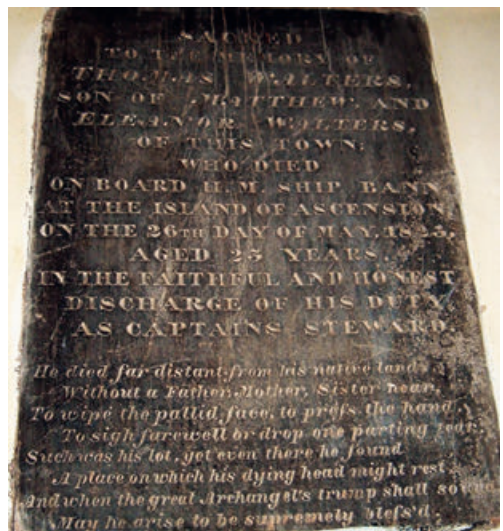 SACRED
TO THE MEMORY OF
THOMAS WALTERS,
SON OF MATTHEW AND
ELEANOR WALTERS,
OF THIS TOWN;
WHO DIED
ON BOARD H.M. SHIP BANN
AT THE ISLAND OF ASCENSION,
ON THE 26TH DAY OF MAY, 1823,
AGED 23 YEARS,
IN THE FAITHFUL AND HONEST
DISCHARGE OF HIS DUTY
AS CAPTAINS STEWARD.
He died far distant from his native land,
Without a Father, Mother, Sister near,
To wipe the pallid face, to press the hand,
To sigh farewell or drop one parting tear.
Such was his lot, yet even there he found
A place on which his dying head might rest.
And when the great Archangel's trump shall sound
May he arise to be supremely bless'd.